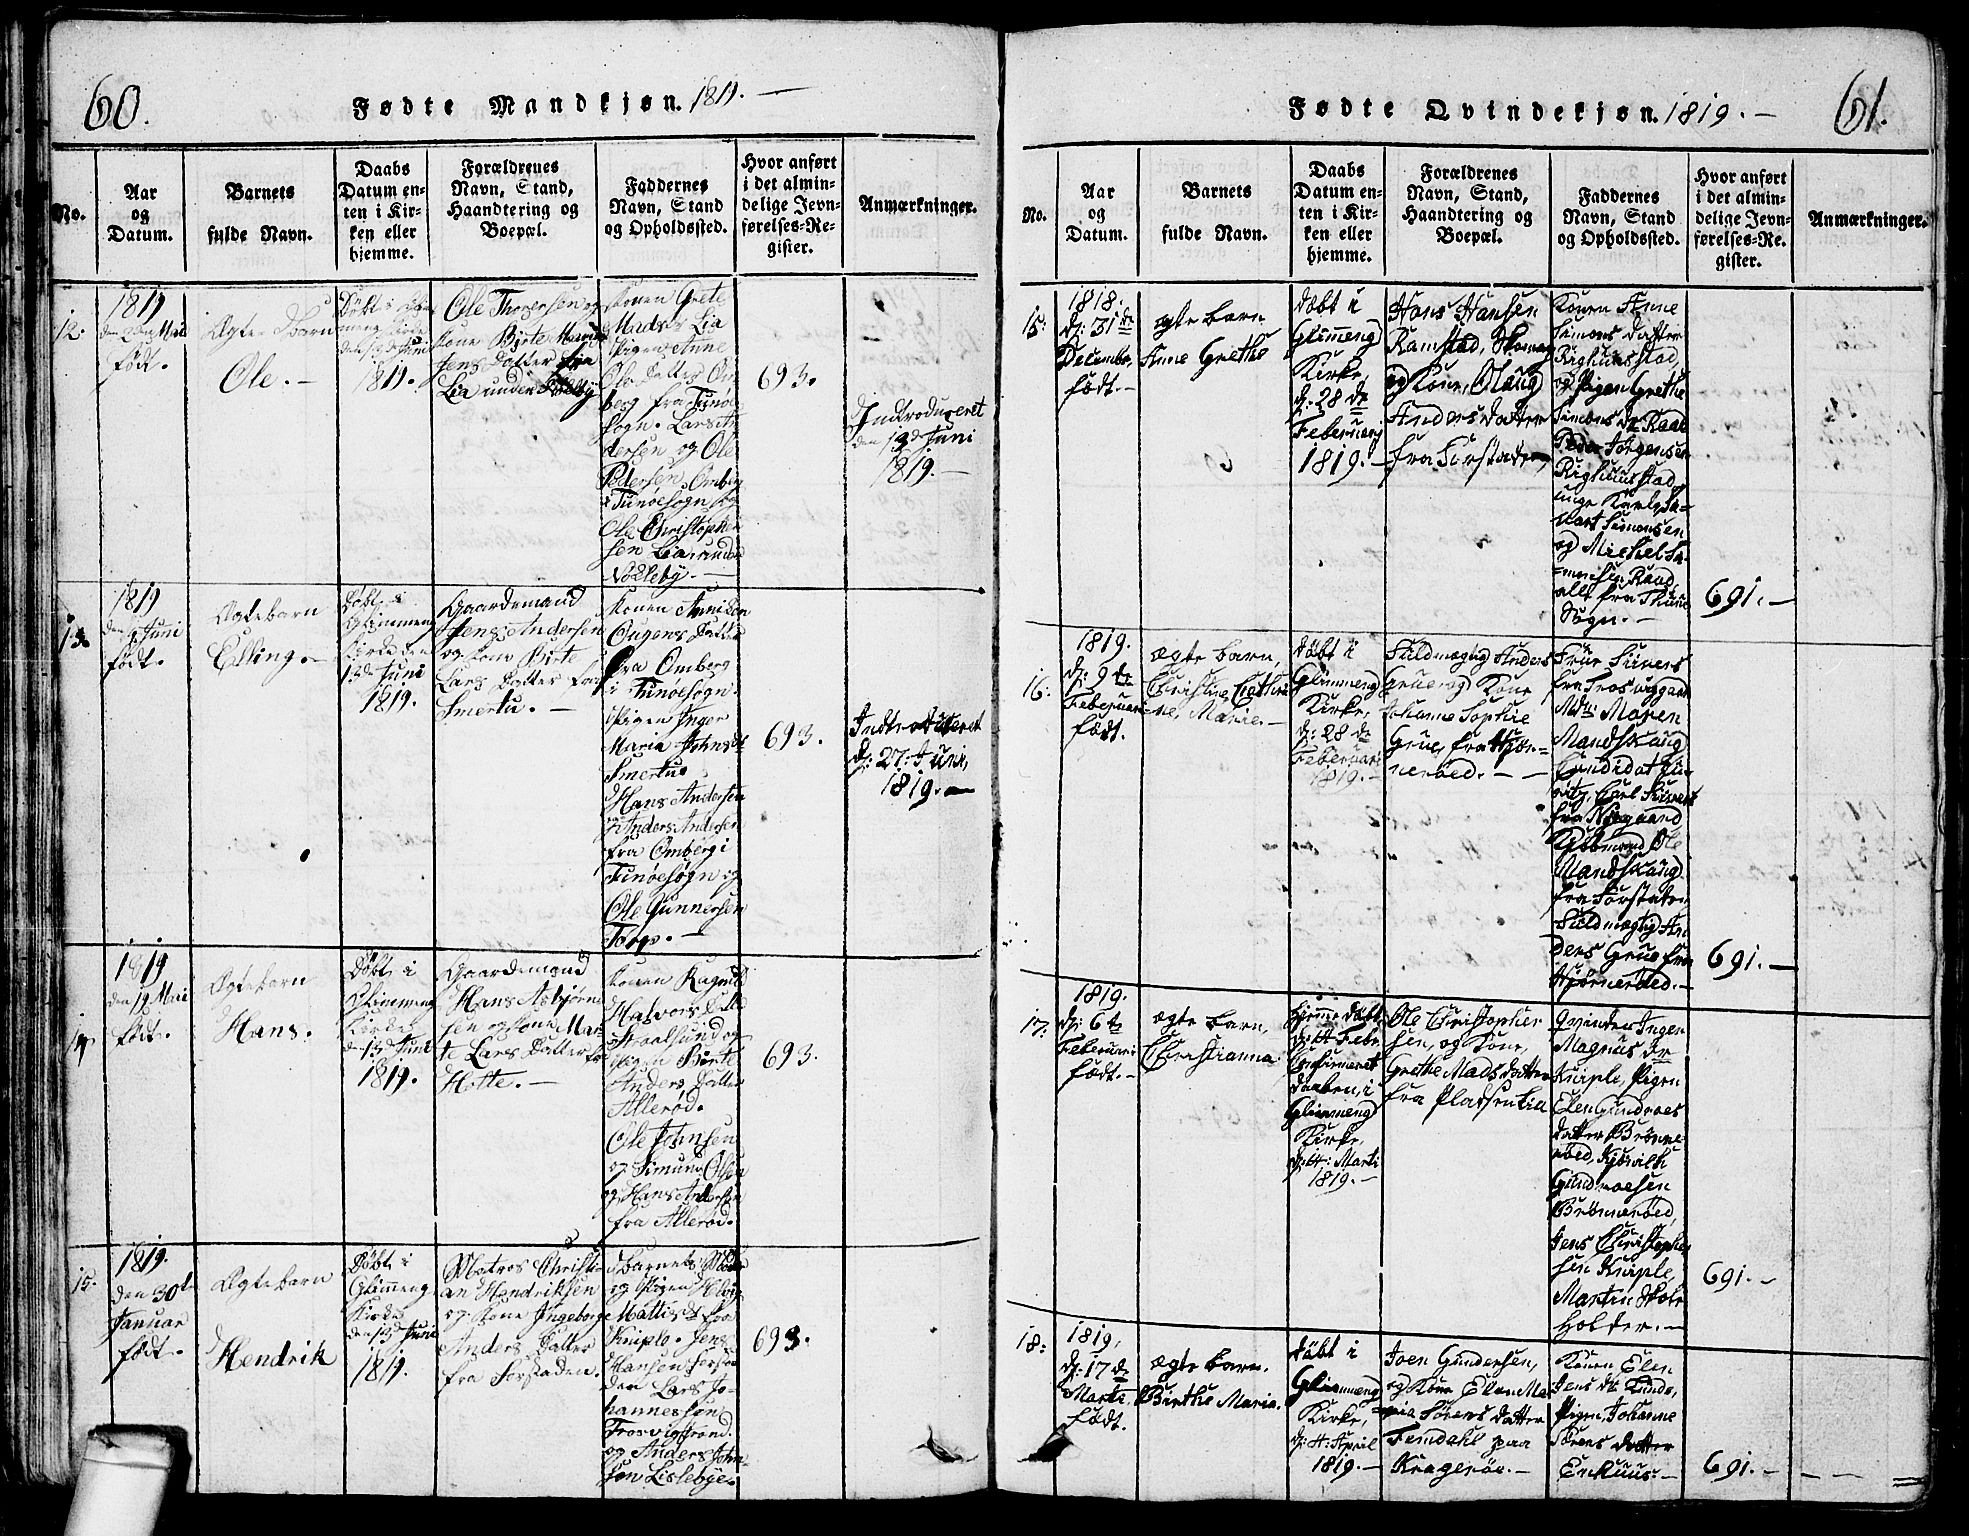 60.
Fødte Mandkjøn. 1819. —
No.
Aar
og
Datum.
Barnets
fulde Navn.
Daabs
Datum en-
ten i Kir-
ken eller
hjemme.
Forældrenes
Navn, Stand,
Haandtering og
Boepæl.
Faddernes
Navn, Stand
og Opholdssted.
Hvor anført
i det almin-
delige Jevn-
førelses-Re-
gister.
Anmærkninger.
12.
1819
født.
Ægte Barn
Ole. —
Døbt i
1819.
Ole
kone Birte Marie
Jens Datter fra
Lia under
Konen Grete
Mads Lia
Pigen Anne
Ole Datter Om
berg fra Tunøe
Sogn. Lars An
dersen og Ole
Pedersen Omberg
i Tunøesogn og
Ole Christopher
sen Lia under
693.
Introduceret
den 13d Juni
1819. —
13.
1819
Juni
født.
Ægtebarn
Elling. —
Døbt i
Glimmeng
Kirke den
13d Juni
1819.
Gaardemand
Jens Andersen
og kone Birte
Lars Datter fra
Smertu. —
Konen
Ougens Datter
fra Omberg
i Tunøesogn.
Pigen Inger
Maria Johnsdr
Smertu
Hans Andersen
og Anders Andersen
fra Omberg i
Tunøesogn og
Ole Gunnersen
Torp. —
693.
Introduceret
d: 27: Juni,
1819. —
14
1819
født.
Ægtebarn
Hans.
Døbt i
Glimmeng
Kirke
den 13d Juni
1819.
Gaardemand
Hans Asbjørn
sen og kone Mar
te Lars Datter fra
Hotte. —
Konen
Halvors Datter
Straalsund og
Pigen Børte
Anders Datter
Allerød.
Ole Johnsen
og Simund Olsen
og Hans Andersen
fra Allerød.
693.
15.
1819.
den 30t
Januar
født.
Ægtebarn
Hendrik
Døbt i
Glimmeng
Kirke
den 13d Juni
1819.
Matros Christi
an Hendriksen
og kone Ingeborg
Anders Datter
fra Forstaden.
Barnets
og Pigen
Mattisdr fra
Kniple. Jens
Hansen Forsta
den Lars Jo-
hannessøn
Trosvigstrand.
og Anders John
søn Lislebye.
693.
61.
Fødte Qvindekjøn. 1819. —
No.
Aar
og
Datum.
Barnets
fulde Navn.
Daabs
Datum en-
ten i Kir-
ken eller
hjemme.
Forældrenes
Navn, Stand,
Haandtering og
Boepæl.
Faddernes
Navn, Stand
og Opholdssted.
Hvor anført
i det almin-
delige Jevn-
førelses-Re-
gister.
Anmærkninger.
15:
1818.
d: 31te
Decembr.
født. —
ægte barn
Anne Grethe
døbt i
Glimmeng
Kirke,
d: 28de
Februarij
1819. —
Hans Hansen
Ramstad,
og Kone, Olaug
Anders datter
fra Forstaden,
Konen Anne
Simons datter
og Pigen Grethe
Simons dr Raad
Peder Jørgensen
unge Karle
Simonsen
og Michel
Raad
alle fra Thune
Sogn. —
691. —
16:
1819.
d: 9te
Februarii
født.
ægte barn,
Christine Cathri-
ne, Marie. —
døbt i
Glimmeng
Kirke,
d: 28de
Februari
1819. —
Fuldmægtig Anders
Grue og Kone
Johanne Sophie
Grue, fra Hjør-
nerøed. —
Frue Sivers
fra
Maren
Mandskaug
Candidat
Carl Sivers
fra
Kjøbmand Ole
Mandskaug
fra Forstaden
Fuldmægtig An
ders Grue fra
Hjørnerøed. —
691. —
17:
1819.
d: 6te
Februarii
født. —
ægte barn,
Christianna
hjemme døbt
Confirmeret
daaben, i
Glimmeng
Kirke,
Marti
1819. —
Ole Christopher
sen, og Kone,
Grethe Mads datter
fra Platsentia
Qvinden Inger
Magnus dr
Kniple, Pigen
Elen Gundroes
datter Brønne-
røed,
Gundroesen
Brønnerøed,
Jens Christopher
sen Kniple,
Martin
Holder. —
691. —
18:
1819,
d: 17de
Marti
født.
ægte barn.
Birthe Maria.
døbt i
Glimmeng
Kirke,
d: 4: April
1819. —
Joen Gundersen,
og Kone Elen Ma
ria Sørens datter
Femdahl paa
Kragerøe. —
Konen Elen
Jens dr
Pigen, Johanne
Sørens datter
691. —